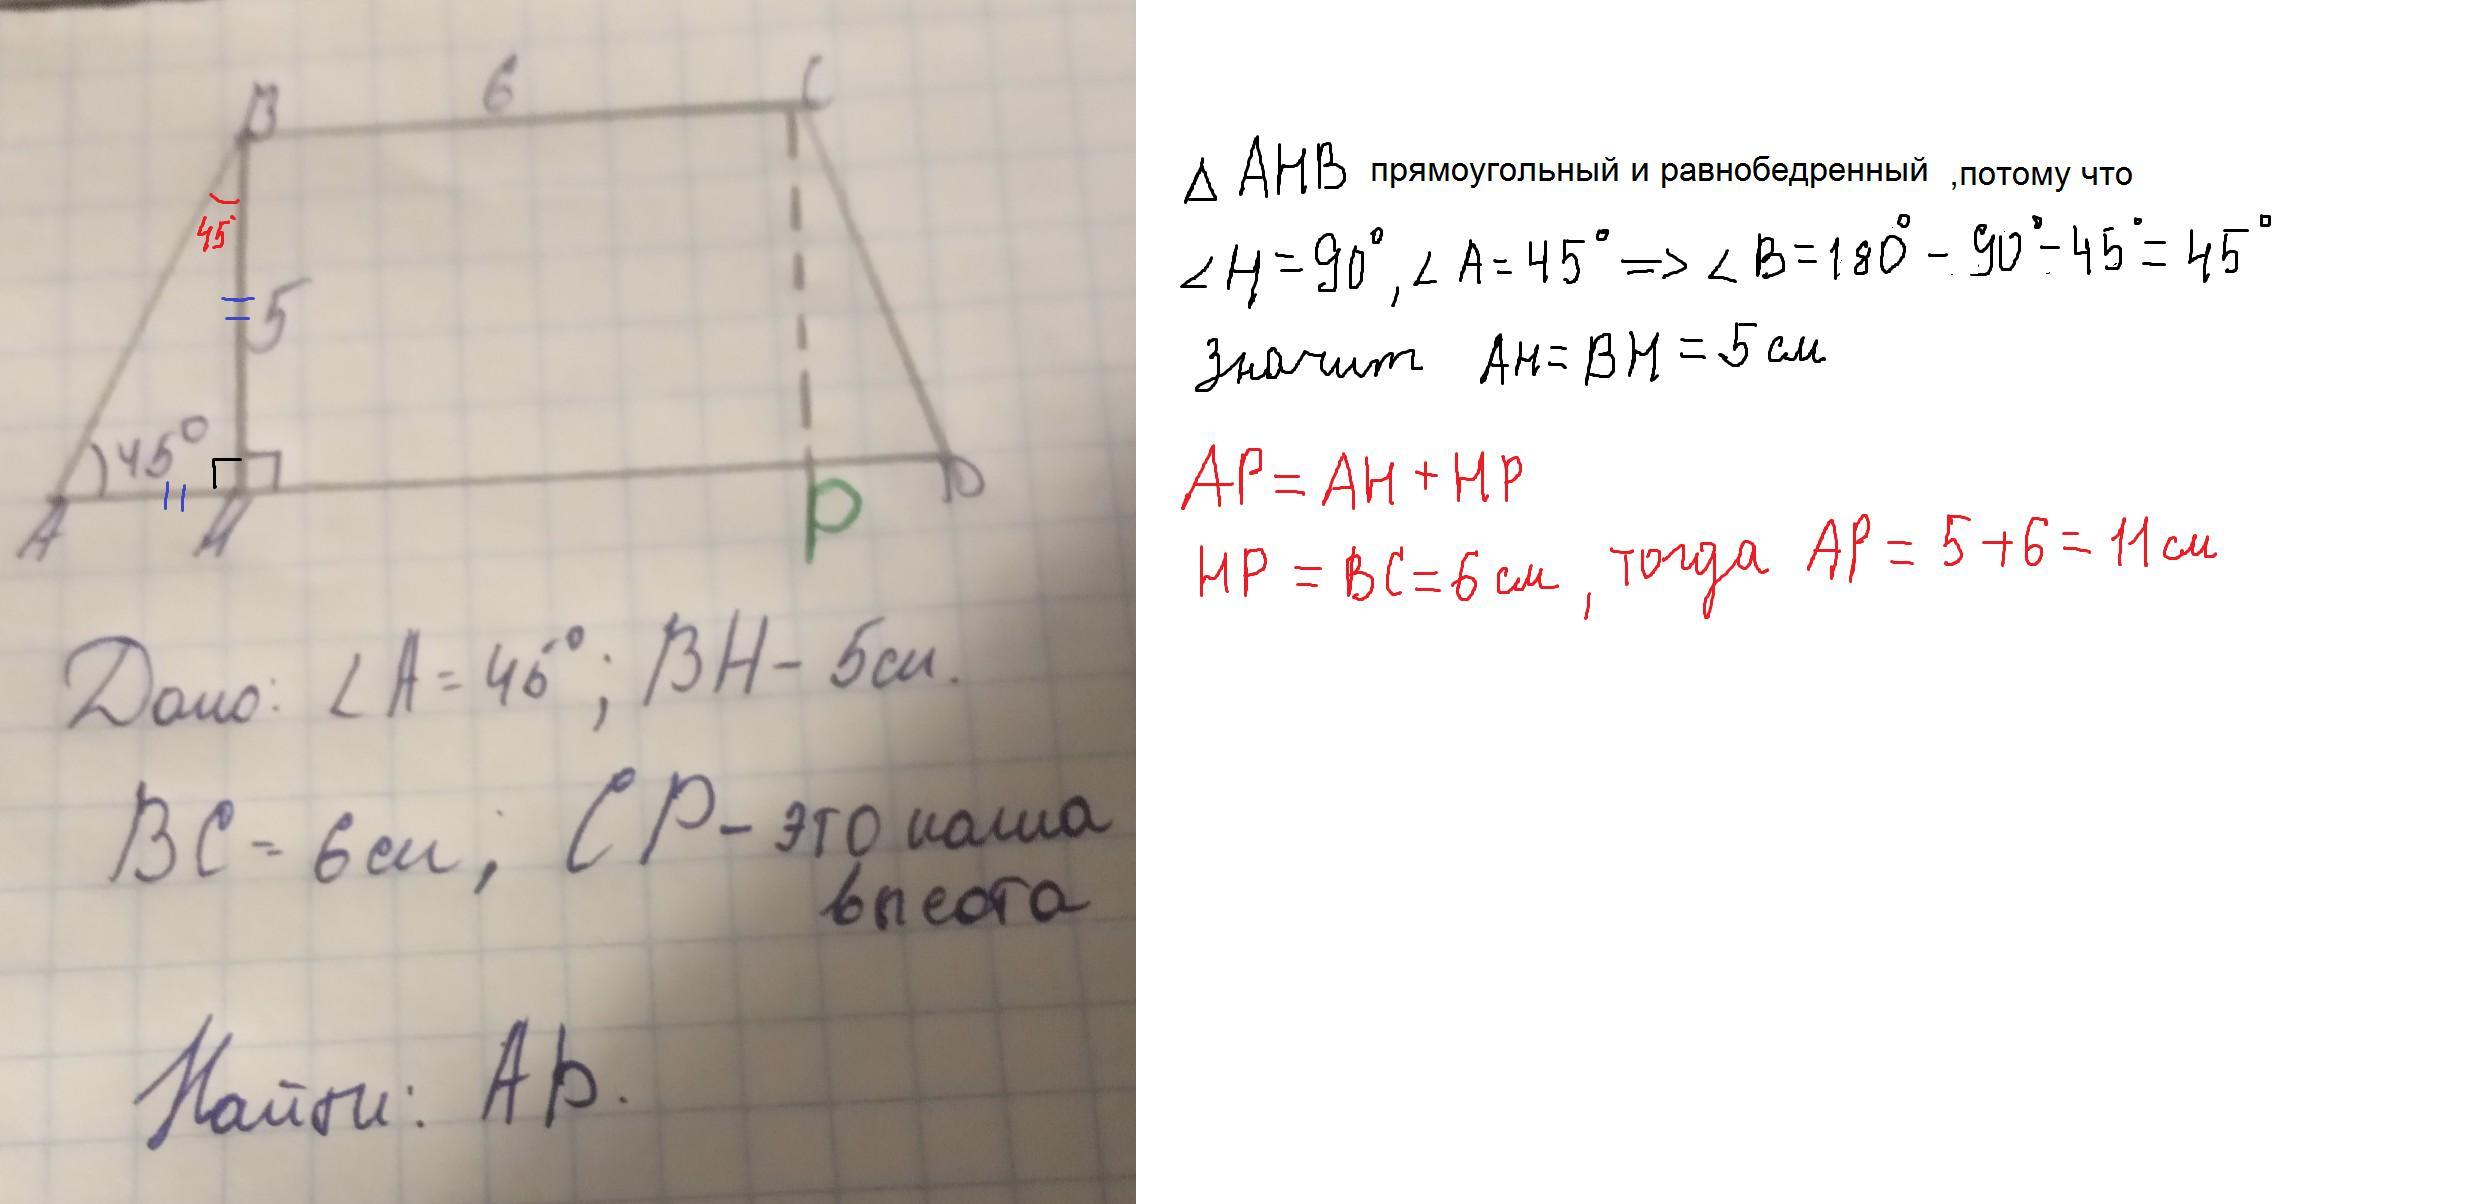 B
6
C
45°
5
45°
A
H
P
D
Дано: ∠A = 45°; BH - 5см.
BC = 6см; CP - это наша
высота
Найти: AP.
△ AHB прямоугольный и равнобедренный ,потому что
∠H = 90°, ∠A = 45° => ∠B = 180° - 90° - 45° = 45°
Значит AH = BH = 5 см
AP = AH + HP
HP = BC = 6 см, тогда AP = 5 + 6 = 11 см